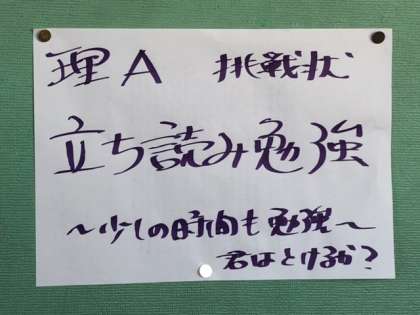 理A 挑戦状
立ち読み勉強
～少しの時間も勉強～
君はとけるか?